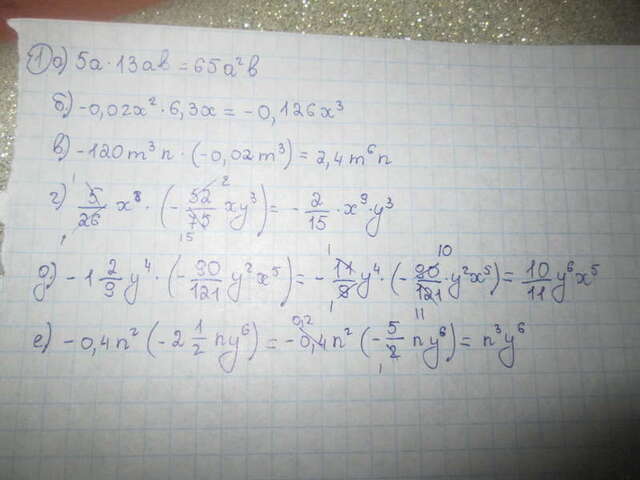 1) а) 5a · 13ab = 65a²b
б) -0,02x² · 6,3x = -0,126x³
в) -120m³n · (-0,02m³) = 2,4m⁶n
г) 5/26 x⁸ · (-52/75 xy³) = -2/15 · x⁹ · y³
д) -1 2/9 y⁴ · (-90/121 y²x⁵) = -11/9 y⁴ · (-90/121 · y²x⁵) = 10/11 y⁶x⁵
е) -0,4n² (-2 1/2 ny⁶) = -0,4n² (-5/2 ny⁶) = n³y⁶